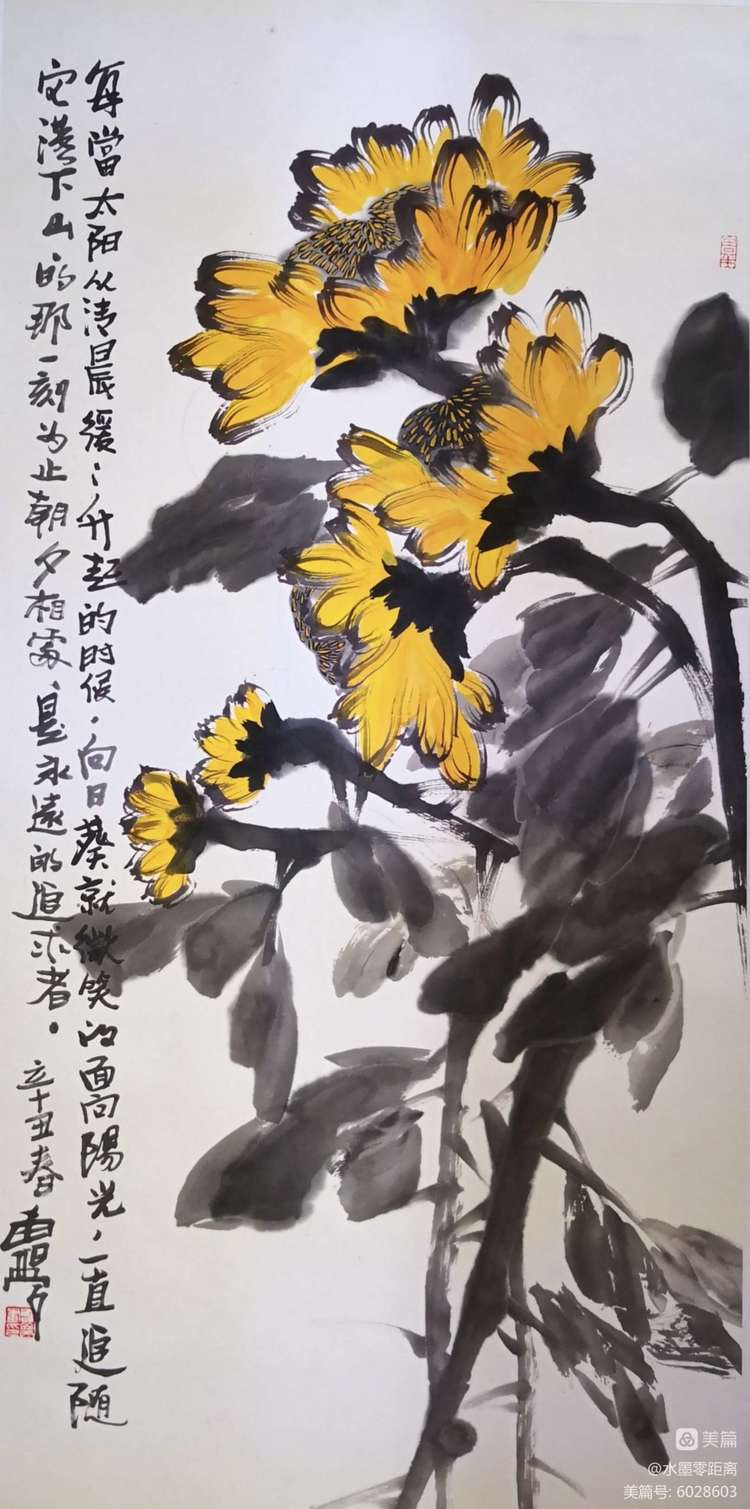 每當太阳从清晨缓〻升起的时候，向日葵就微笑的面向陽光，一直追随
它漡下山的那一刻为止朝夕相處，是永遠的追求者。
辛丑春
美篇
@水墨零距离
美篇号: 6028603